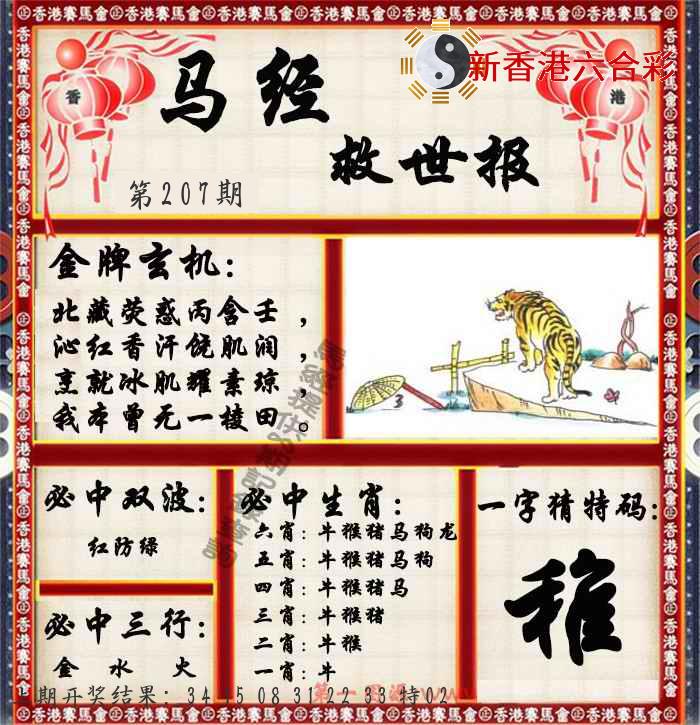 新香港六合彩
香
港
马经
救世报
第207期
金牌玄机:
北藏荧惑丙含壬，
沁红香汗饶肌润，
烹就冰肌耀素琼，
我本曾无一棱田。
3
必中双波:
红防绿
必中三行:
金 水 火
必中生肖:
六肖: 牛猴猪马狗龙
五肖: 牛猴猪马狗
四肖: 牛猴猪马
三肖: 牛猴猪
二肖: 牛猴
一肖: 牛
一字猜特码:
稚
期开奖结果: 34 45 08 31 22 33 特02
香港赛馬會